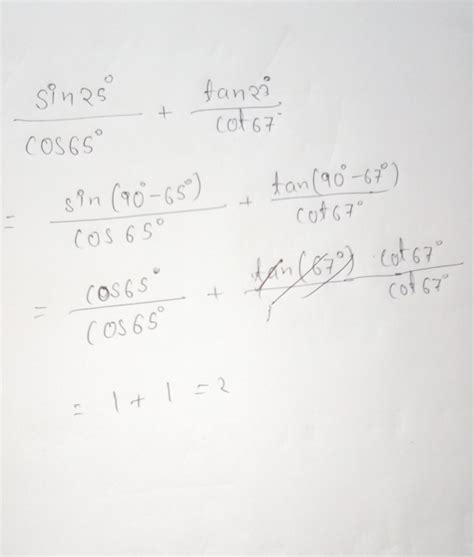 sin25° / cos65° + tan23° / cot67°
= sin(90°-65°) / cos65° + tan(90°-67°) / cot67°
= cos65° / cos65° + tan(67°) cot67° / cot67°
= 1 + 1 = 2